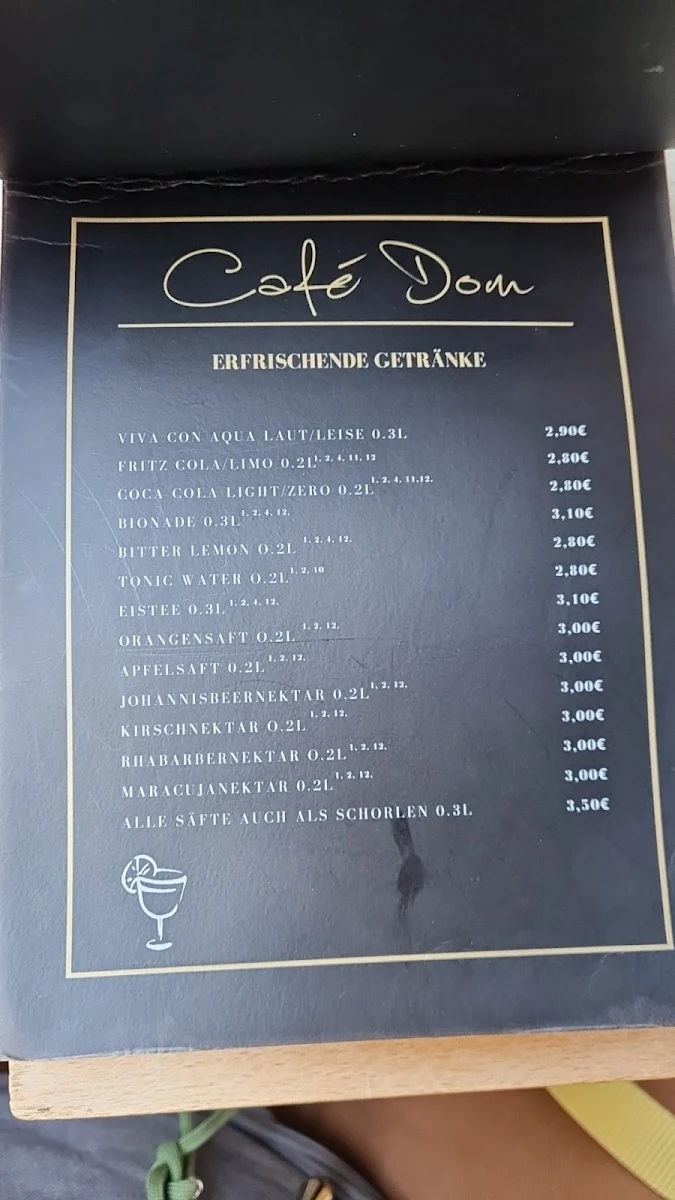 Café Dom
ERFRISCHENDE GETRÄNKE
VIVA CON AQUA LAUT/LEISE 0.3L 2,90€
FRITZ COLA/LIMO 0.2L 1, 2, 4, 11, 12 2,80€
COCA COLA LIGHT/ZERO 0.2L 1, 2, 4, 11,12, 2,80€
BIONADE 0.3L 1, 2, 4, 12, 3,10€
BITTER LEMON 0.2L 1, 2, 4, 12, 2,80€
TONIC WATER 0.2L 1, 2, 10 2,80€
EISTEE 0.3L 1, 2, 4, 12, 3,10€
ORANGENSAFT 0.2L 1, 2, 12, 3,00€
APFELSAFT 0.2L 1, 2, 12, 3,00€
JOHANNISBEERNEKTAR 0.2L 1, 2, 12, 3,00€
KIRSCHNEKTAR 0.2L 1, 2, 12, 3,00€
RHABARBERNEKTAR 0.2L 1, 2, 12, 3,00€
MARACUJANEKTAR 0.2L 1, 2, 12, 3,00€
ALLE SÄFTE AUCH ALS SCHORLEN 0.3L 3,50€